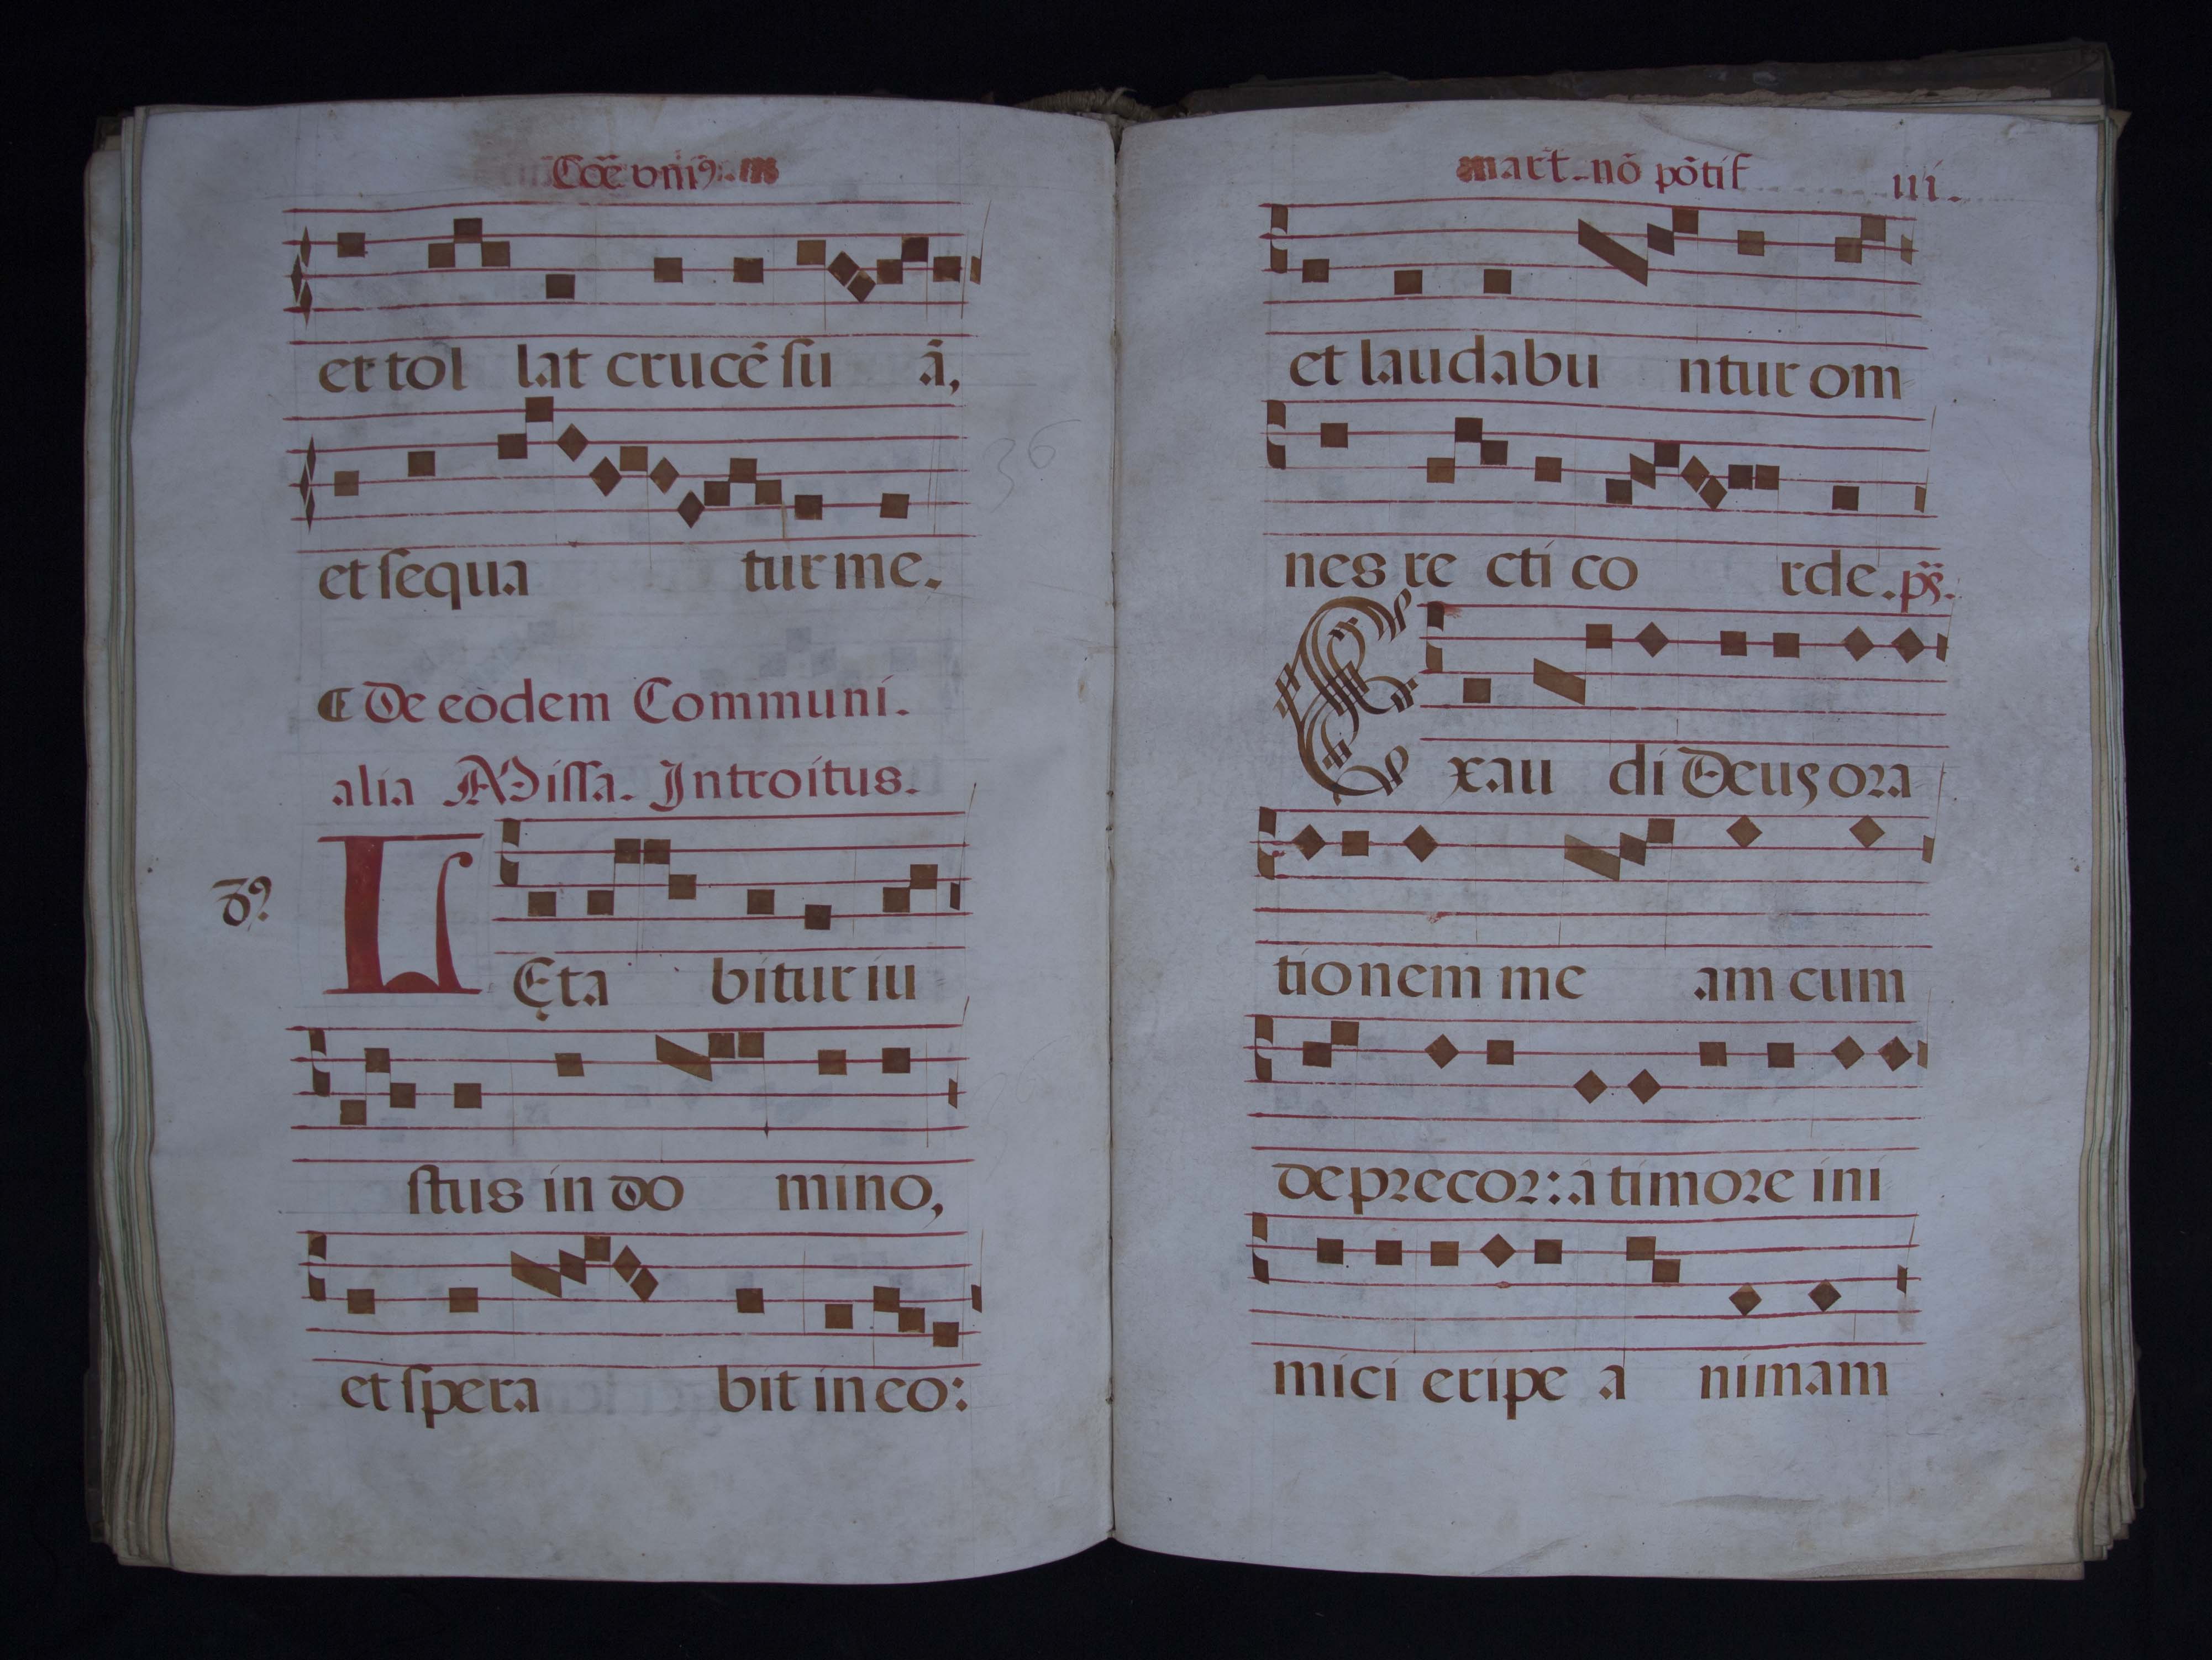 Cōe vniꝰ. m
et tol lat crucē ſu ā,
36
et ſequa tur me.
De eodem Communi.
alia Miſſa. Introitus.
Lęta bitur iu
ſtus in do mino,
et ſpera bit in eo:
mart. nō pōtif iii.
et laudabu ntur om
nes re cti co rde. ps.
Exau di Deus ora
tionem me am cum
deprecor: a timore ini
mici eripe a nimam